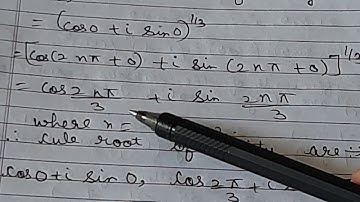 = (cos0 + i sin0)^1/3
= [cos(2nπ + 0) + i sin (2nπ + 0)]^1/3
= cos 2nπ/3 + i sin 2nπ/3
where n =
∴ cube root of are :-
cos0 + i sin0, cos 2π/3 + i